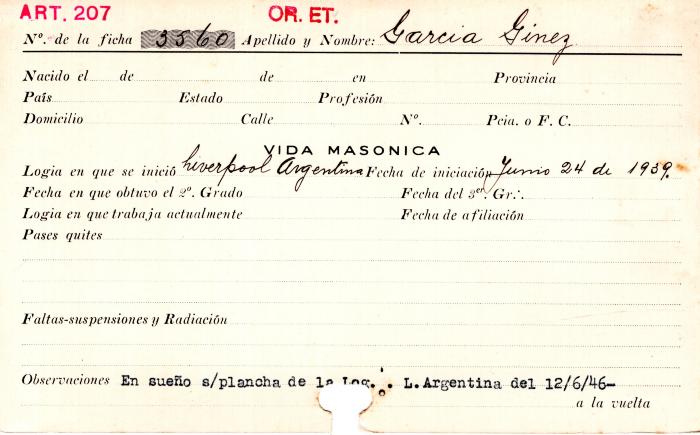 ART. 207 OR. ET.
Nº. de la ficha 3560 Apellido y Nombre: Garcia Ginez
Nacido el de de en Provincia
País Estado Profesión
Domicilio Calle Nº. Pcia. o F. C.
VIDA MASONICA
Logia en que se inició Liverpool Argentina Fecha de iniciación Junio 24 de 1939.
Fecha en que obtuvo el 2º. Grado Fecha del 3er. Gr∴
Logia en que trabaja actualmente Fecha de afiliación
Pases quites
Faltas-suspensiones y Radiación
Observaciones En sueño s/plancha de la Log∴ L.Argentina del 12/6/46-
a la vuelta